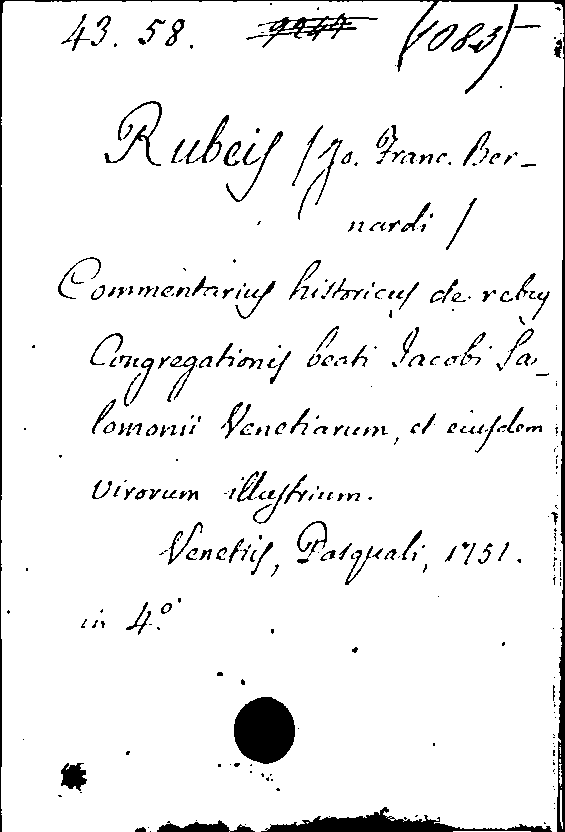 43. 58. 9247 (1083)
Rubeis / Jo. Franc. Ber-
nardi /
Commentarius historicus de rebus
Congregationis beati Jacobi Sa-
lomonii Venetiarum, et eiusdem
virorum illustrium.
Venetiis, Pasquali, 1751.
in 4.o